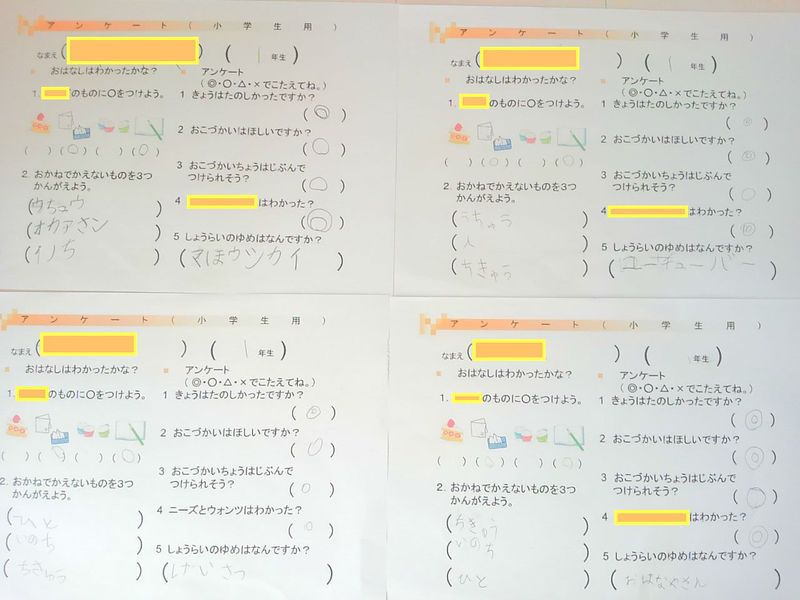 アンケート(小学生用)
なまえ( ) ( 1 年生)
おはなしはわかったかな?
1. のものに〇をつけよう。
( ) (〇) ( ) (〇)
2. おかねでかえないものを3つ
かんがえよう。
(ウちュウ)
(オカアさン)
(イノち)
アンケート
(◎・〇・△・×でこたえてね。)
1 きょうはたのしかったですか?
(◎)
2 おこづかいはほしいですか?
(〇)
3 おこづかいちょうはじぶんで
つけられそう?
(〇)
4 はわかった?
(◎)
5 しょうらいのゆめはなんですか?
(マほウツカイ)
アンケート(小学生用)
なまえ( ) ( 1 年生)
おはなしはわかったかな?
1. のものに〇をつけよう。
( ) (〇) ( ) (〇)
2. おかねでかえないものを3つ
かんがえよう。
(うちゅう)
(人)
(ちきゅう)
アンケート
(◎・〇・△・×でこたえてね。)
1 きょうはたのしかったですか?
(◎)
2 おこづかいはほしいですか?
(◎)
3 おこづかいちょうはじぶんで
つけられそう?
(〇)
4 はわかった?
(◎)
5 しょうらいのゆめはなんですか?
(ユーチューバー)
アンケート(小学生用)
なまえ( ) ( 1 年生)
おはなしはわかったかな?
1. のものに〇をつけよう。
( ) (〇) ( ) (〇)
2. おかねでかえないものを3つ
かんがえよう。
(ひと)
(いのち)
(ちきゅう)
アンケート
(◎・〇・△・×でこたえてね。)
1 きょうはたのしかったですか?
(◎)
2 おこづかいはほしいですか?
(〇)
3 おこづかいちょうはじぶんで
つけられそう?
(〇)
4 ニーズとウォンツはわかった?
(〇)
5 しょうらいのゆめはなんですか?
(けいさつ)
アンケート(小学生用)
なまえ( ) ( 1 年生)
おはなしはわかったかな?
1. のものに〇をつけよう。
( ) (〇) ( ) (〇)
2. おかねでかえないものを3つ
かんがえよう。
(ちきゅう)
(いのち)
(ひと)
アンケート
(◎・〇・△・×でこたえてね。)
1 きょうはたのしかったですか?
(◎)
2 おこづかいはほしいですか?
(◎)
3 おこづかいちょうはじぶんで
つけられそう?
(〇)
4 はわかった?
(◎)
5 しょうらいのゆめはなんですか?
(おはなやさん)